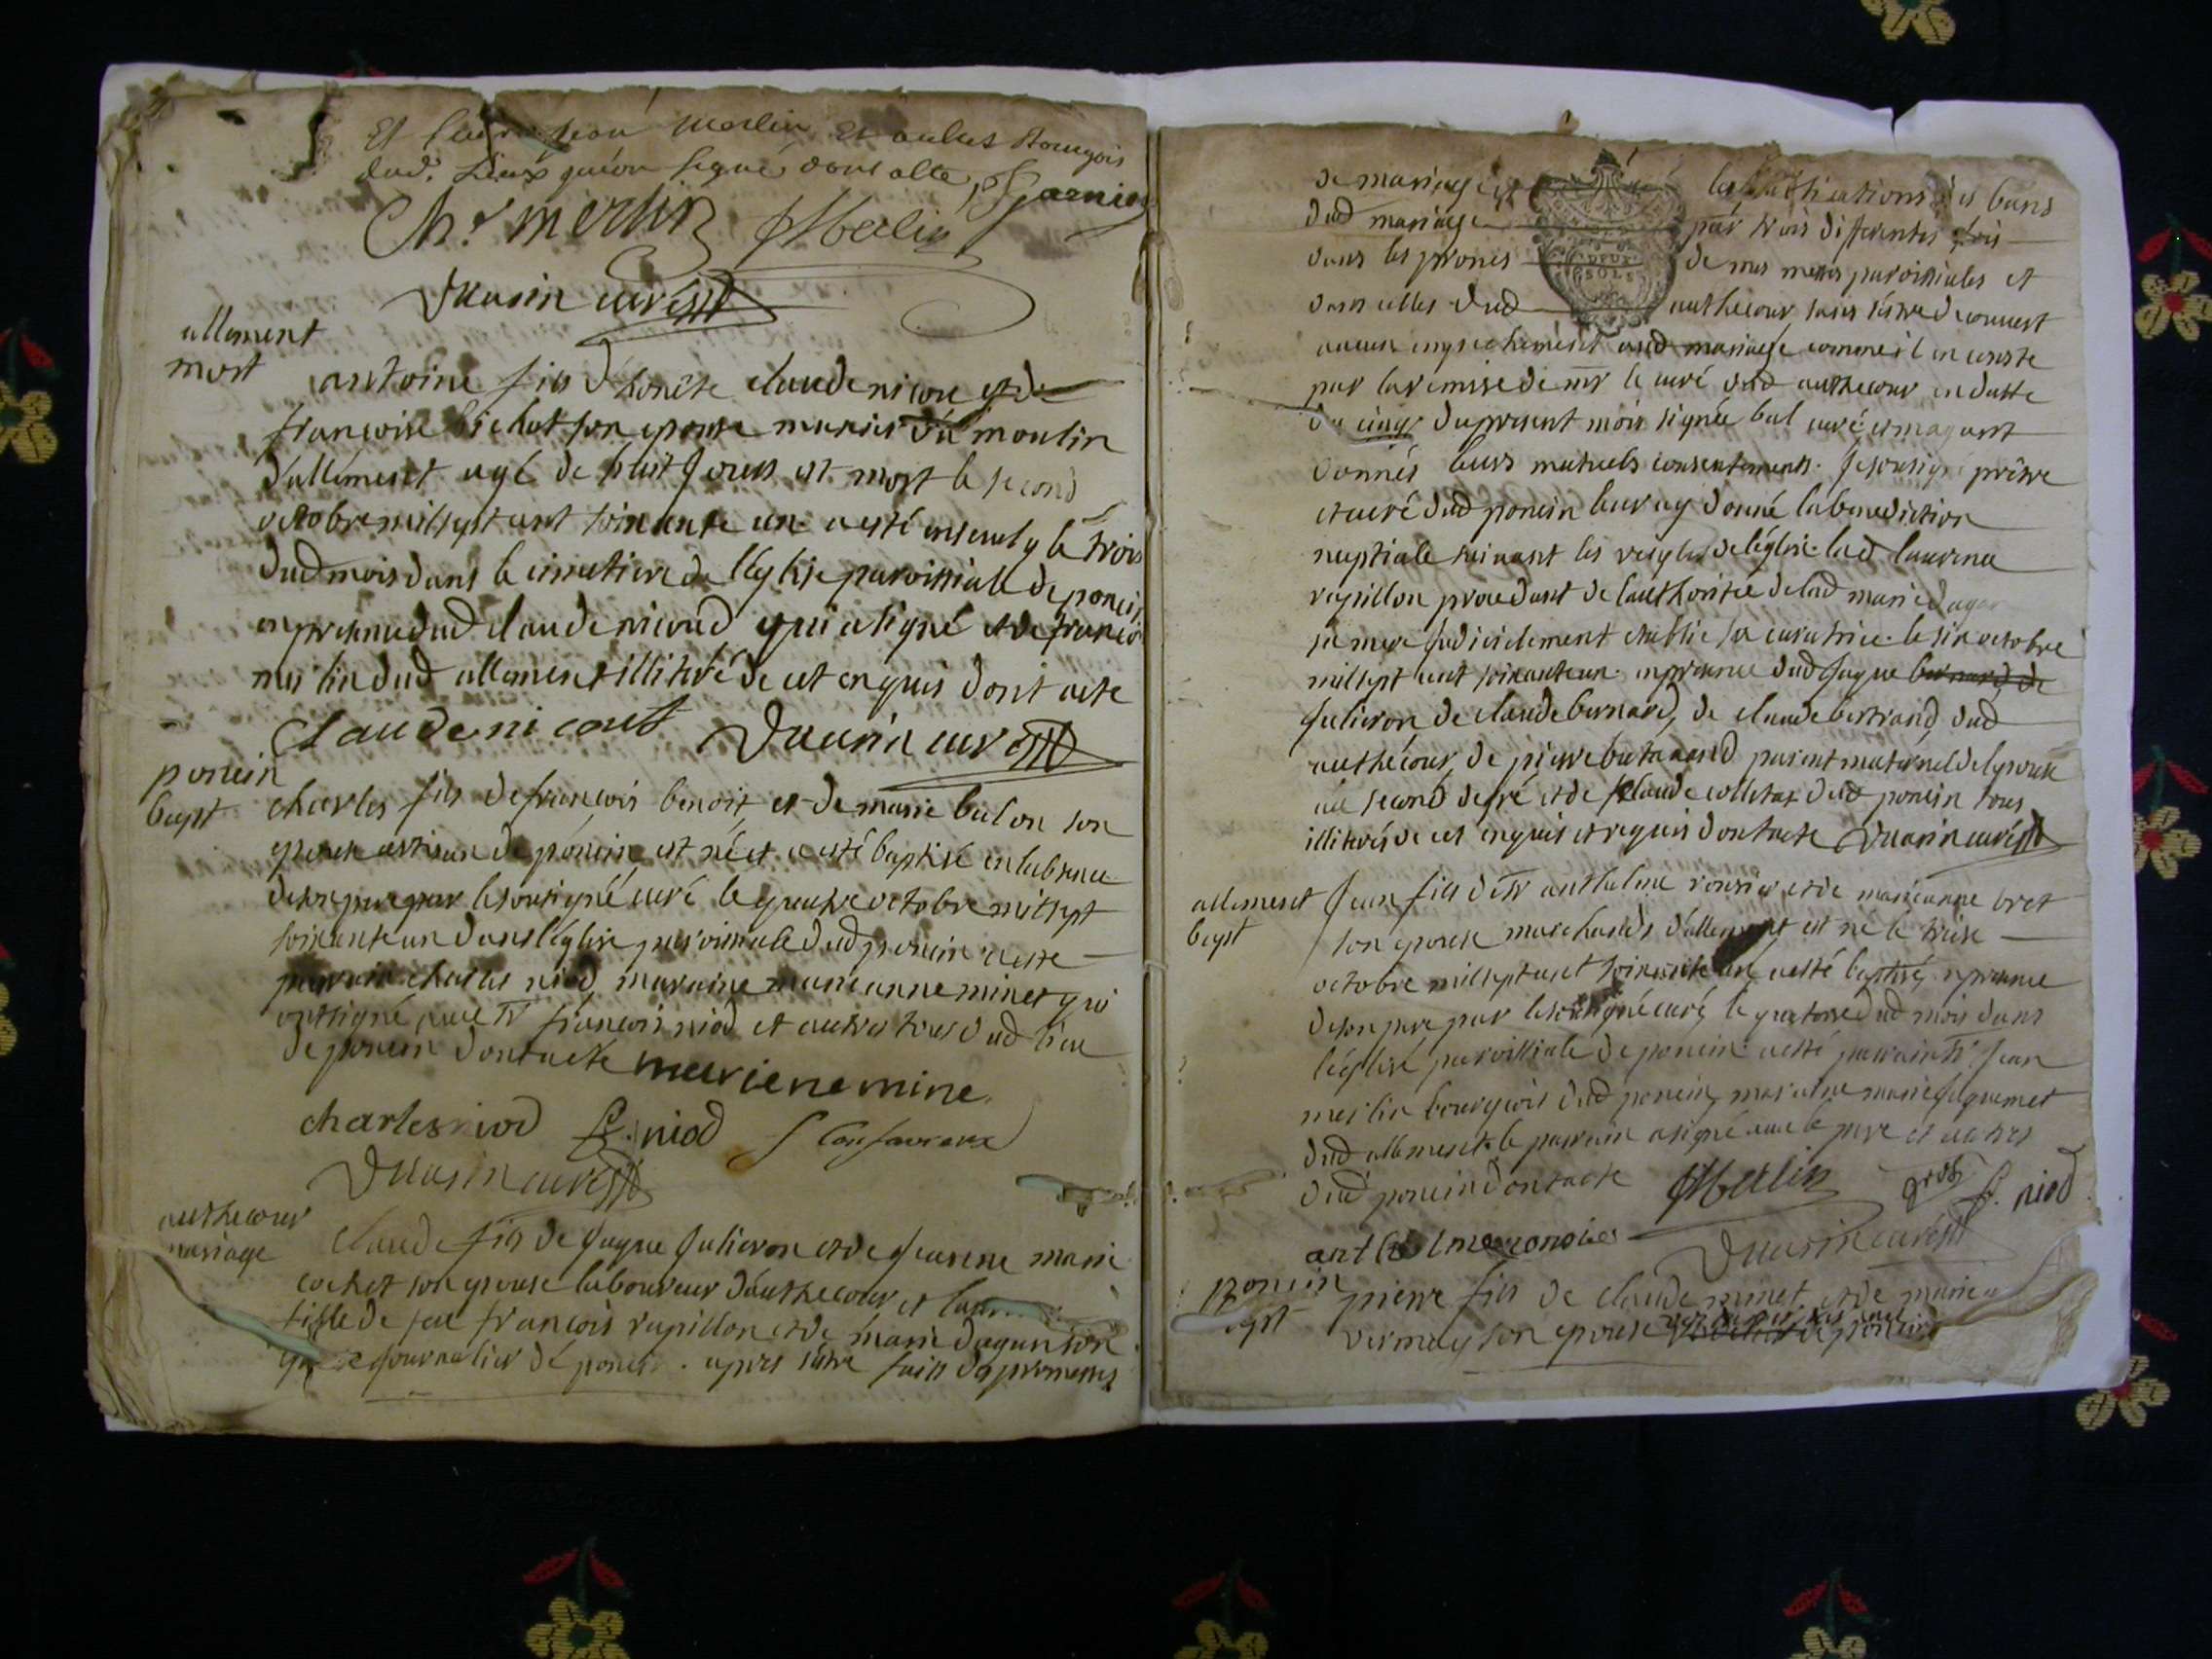 Et jean Merlin Et aultres Bourgois
dud. Lieux qui ont signé dont acte, Garnier
Ch. merlin JMerlin
Duasin curé
allement
mort
antoine fils d'honête claude nicou et de
francoise bichat son epouse mariés du moulin
d'allement agé de huit jours est mort le second
octobre mil sept cent soixante un a esté ensevely le trois
dud mois dans le cimetiere de l'eglise paroissiale de poncin
en presence dud claude nicoud qui a signé et de francois
merlin dud allement illiteré de ce enquis dont acte
Claude nicout Duasin curé
poncin
bapt
charles fils de francois benoit et de marie bulon son
epouse artisan de poncin est né et a esté baptisé en l'absence
de son pere par le sousigné curé le quatre octobre mil sept
soixante un dans l'eglise paroissiale dud poncin a esté
parrain charles niod, maraine marieanne minet qui
ont signé avec sr francois niod et autres tous dud lieu
de poncin dont acte marienemine
charles niod f. niod
Duasin curé
authecour
mariage
Claude fils de jaque julieron et de jeanne marie
cochet son epouse laboureur d'authecour et
fille de feu francois rapillon et de marie dagan son
journalier de poncin. apres s'etre faits des promesses
de mariage et les publications des bans
dud mariage par trois differentes fois
dans les prones de mes messes paroissiales et
DEUX
SOLS
dans celles dud authecour sans s'etre decouvert
aucun empechement aud mariage comme il en conste
par la remise de mr le curé dud authecour en datte
du cinq du present mois signée bal curé et m'ayant
donnés leurs mutuels consentements. je sousigné prêtre
et curé dud poncin leur ay donné la benediction
nuptiale suivant les reigles de l'eglise. lad laurence
rapillon procedant de l'authoritée de lad marie dagan
sa mere judicielement etablie sa curatrice. le six octobre
mil sept cent soixante un. en presence dud jaque bernard, de
julieron de claude bernard, de claude bertrand, dud
authecour, de pierre parent maternel de l'epouse
au second degré et de claude colletaz dud poncin tous
illiterés de ce enquis et requis dont acte Duasin curé
allement
bapt
Jean fils de sr anthelme ronsier et de marieanne bret
son epouse marchands d'allement est né le treize
octobre mil sept cent soixante un a esté baptisé en presence
de son pere par le sousigné curé le quatorze dud mois dans
l'eglise paroissiale de poncin a esté parrain sr jean
merlin bourgeois dud poncin, maraine marie jaquemet
dud allement le parrain a signé avec le pere et autres
dud poncin dont acte JMerlin f. niod
anthelme ronsier Duasin curé
poncin
bapt
pierre fils de claude minet et de marie
vermay son epouse